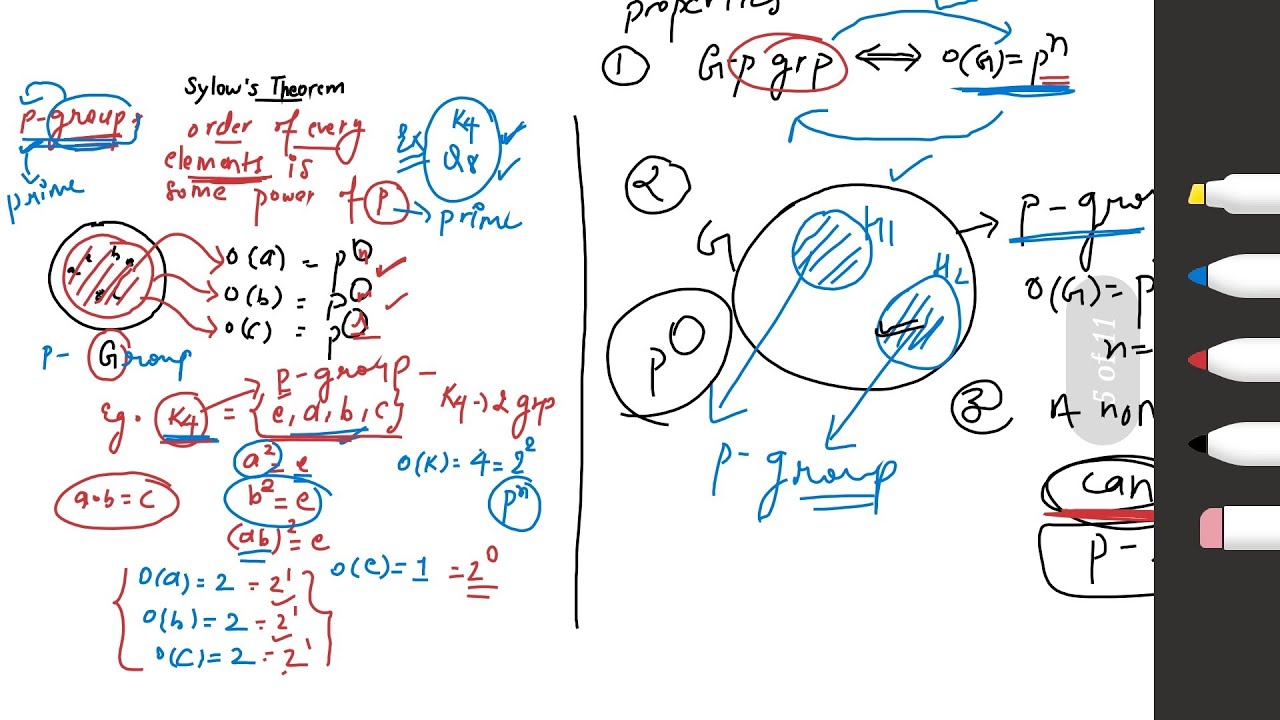 Sylow's Theorem
p-group,
prime
order of every
elements is
some power of p
prime
Ex
K4
Q8
o(a) = p
o(b) = p
o(c) = p
p- Group
p-group
Eg. K4 = {e, a, b, c}
K4 → 2 grp
a² = e
b² = e
(ab)² = e
a·b = c
o(K) = 4 = 2²
pⁿ
o(a) = 2 = 2¹
o(b) = 2 = 2¹
o(c) = 2 = 2¹
o(e) = 1 = 2⁰
properties
① G-p grp ⟷ o(G) = pⁿ
②
G
H1
H2
p
p-group
p-gro
o(G) = p
n =
③ A non
can
p-
5 of 11